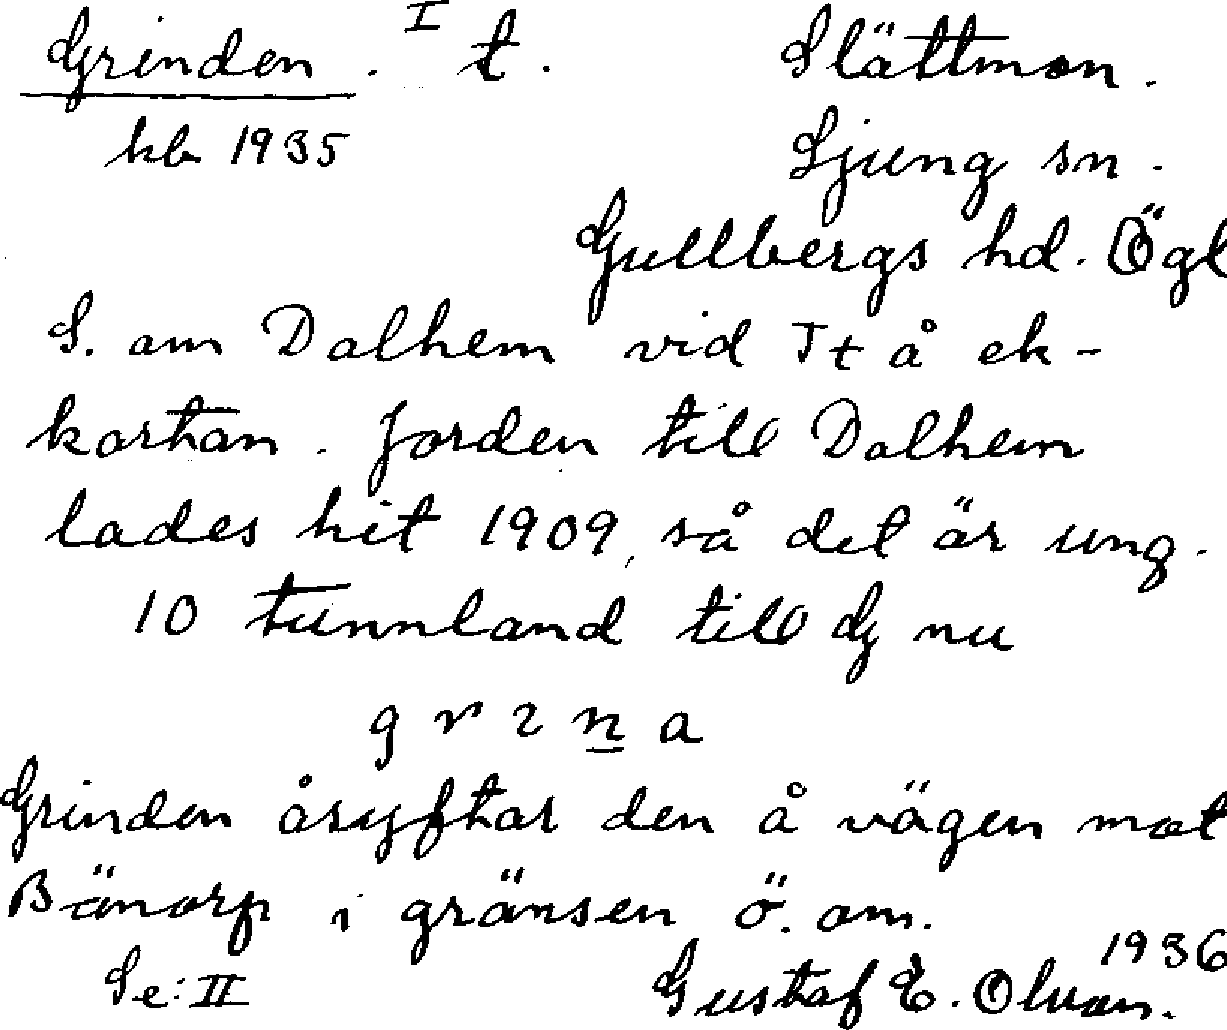 Grinden. I t. Slättmon.
kb 1935 Ljung sn.
Gullbergs hd. Ögl
S. om Dalhem vid Jt å ek-
kartan. Jorden till Dalhem
lades hit 1909, så det är ung.
10 tunnland till G nu
g r ɩ n a
Grinden åsyftar den å vägen mot
Bänorp i gränsen ö. om.
Se: II 1936
Gustaf E. Olvan.